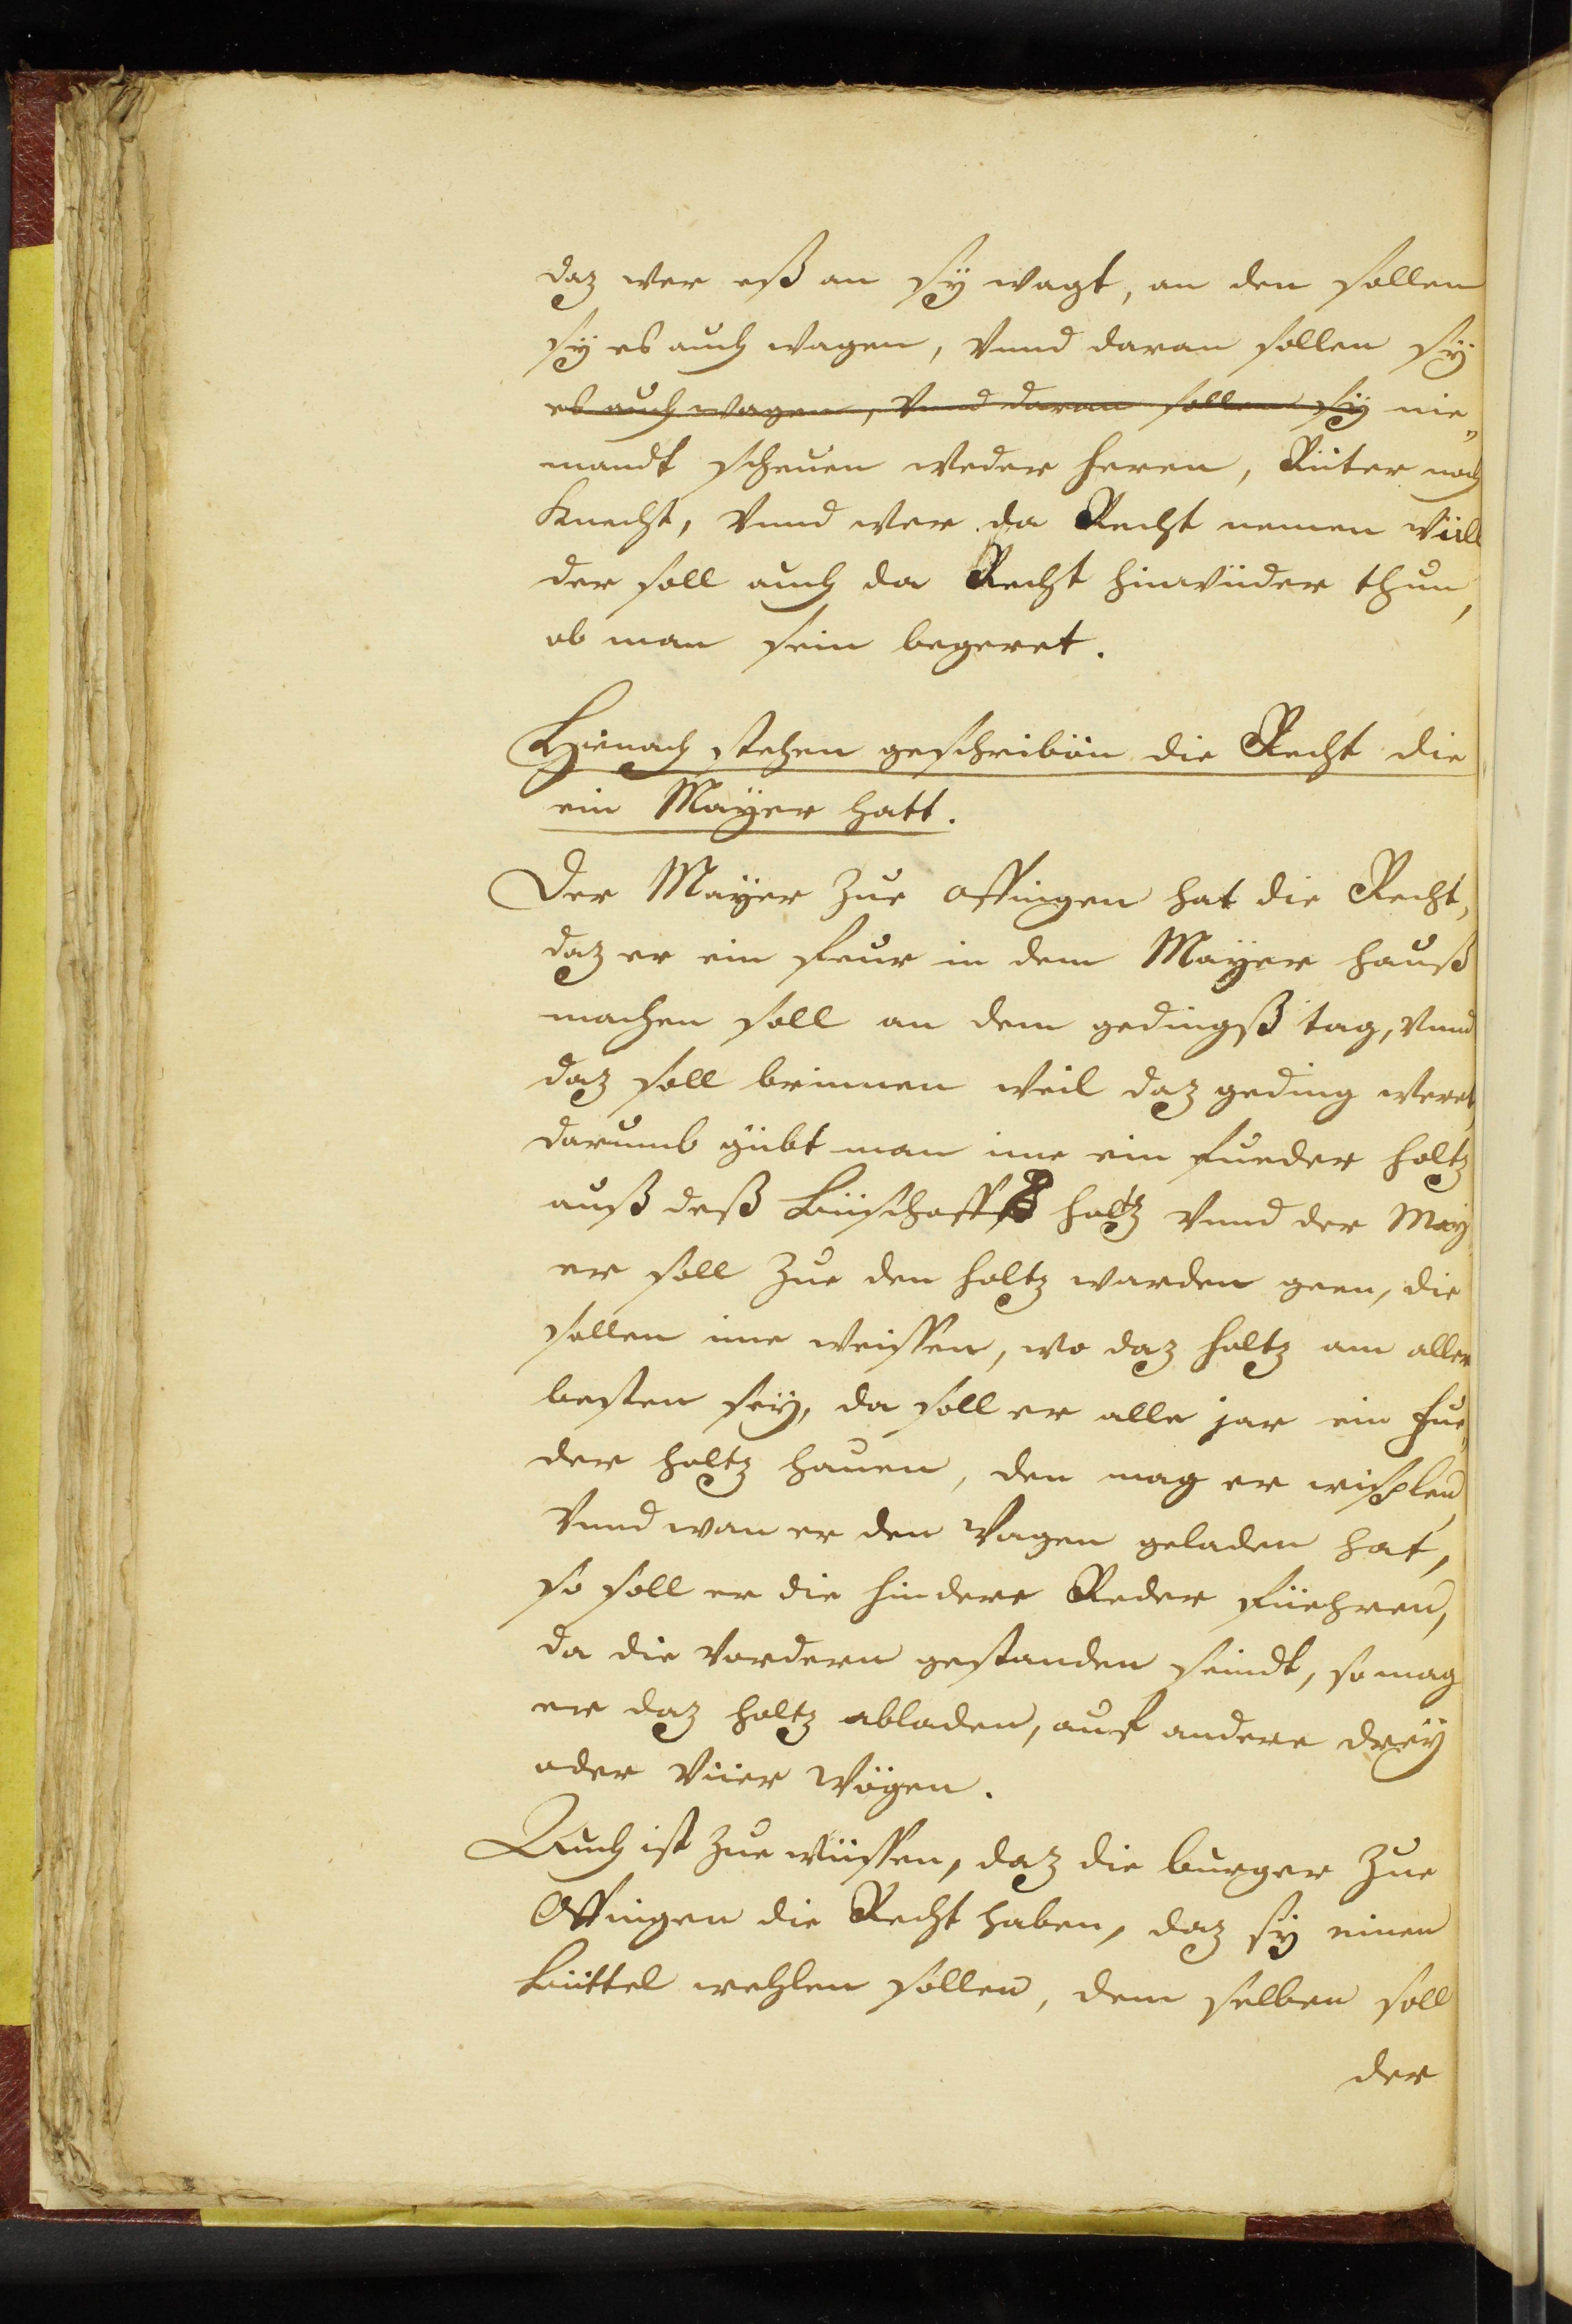 daz wer eß an sÿ wagt, an den sollen
sÿ es auch wagen, Vnnd daran sollen sÿ
es auch wagen, Vnnd daran sollen sÿ nie„
mandt scheuen weder herren, Ritter noch
Knecht, Vnnd wer da Recht nemen will
der soll auch da Recht hinwider thun,
ob man sein begeret.
Hienach stehen geschriben die Recht die
ein Mayer hatt.
Der Mayer zue offingen hat die Recht,
daz er ein feur in dem Mayer hauß
machen soll an dem gedingß tag, Vnnd
daz soll brinnen weil daz geding weret,
darumb gibt man ime ein fueder holtz
auß deß bischoffs holtz Vnnd der May
er soll zue den holtz warden geen, die
sollen ime weissen, wo daz holtz am aller
besten seÿ, da soll er alle jar ein fue„
der holtz hauen, den mag er
Vnnd wan er den Wagen geladen hat,
so soll er die hindere Reder füehren,
da die vordern gestanden seindt, so mag
er daz holtz abladen, auf andere dreÿ
oder Viier Wägen.
Auch ist zue wissen, daz die burger zue
Offingen die Recht haben, daz sÿ einen
büttel wehlen sollen, dem selben soll
der